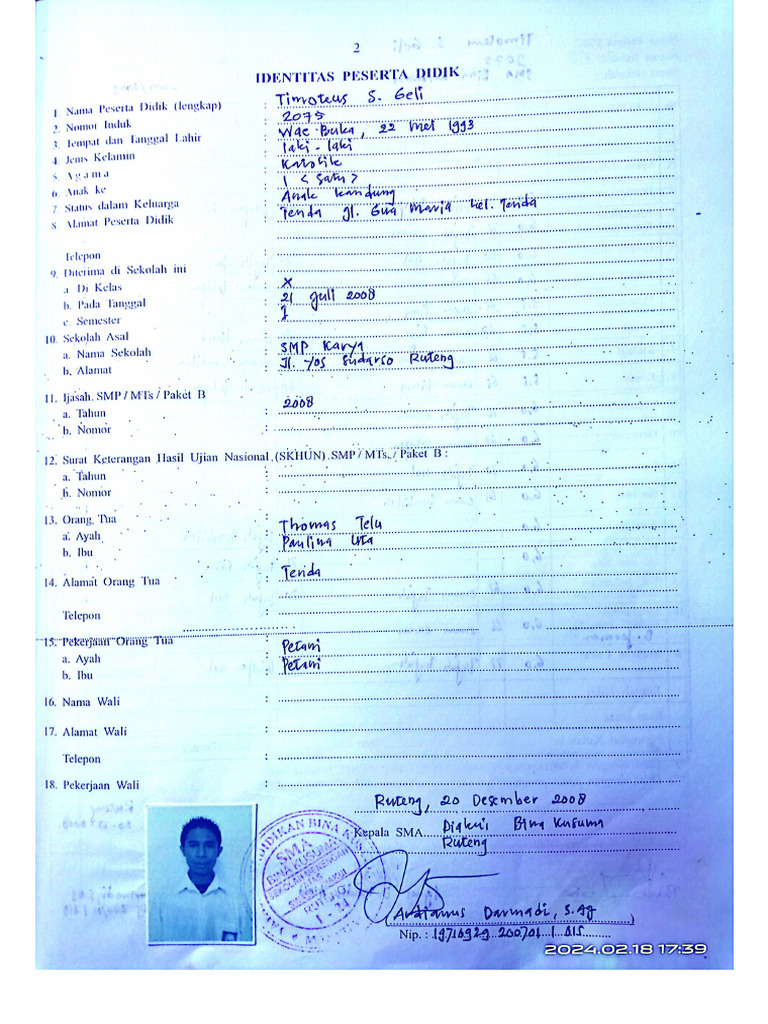 2
IDENTITAS PESERTA DIDIK
1. Nama Peserta Didik (lengkap) : Timoteus S. Geli
2. Nomor Induk : 2075
3. Tempat dan Tanggal Lahir : Wae Buka, 22 Mei 1993
4. Jenis Kelamin : laki-laki
5. Agama : Katolik
6. Anak ke : 1 < satu >
7. Status dalam Keluarga : Anak kandung
8. Alamat Peserta Didik : Tenda Jl. Gua Maria kel. Tenda
Telepon :
9. Diterima di Sekolah ini :
a Di Kelas : X
b. Pada Tanggal : 21 Juli 2008
c. Semester : I
10. Sekolah Asal
a. Nama Sekolah : SMP Karya
b. Alamat : Jl. Yos Sudarso Ruteng
11. Ijasah. SMP / MTs / Paket B
a. Tahun : 2008
b. Nomor :
12. Surat Keterangan Hasil Ujian Nasional (SKHUN) SMP / MTs. / Paket B :
a. Tahun :
b. Nomor :
13. Orang Tua
a. Ayah : Thomas Telu
b. Ibu : Paulina
14. Alamat Orang Tua : Tenda
Telepon
15. Pekerjaan Orang Tua :
a. Ayah : Petani
b. Ibu : Petani
16. Nama Wali :
17. Alamat Wali :
Telepon
18. Pekerjaan Wali :
Ruteng, 20 Desember 2008
Kepala SMA Diakui Bina Kusuma
Ruteng
SMA
BINA KUSUMA
SEKOLAH MENENGAH
RUTENG
( Avdianus Darmadi, S.Ag )
Nip. : 19710929 200701 1 015
2024.02.18 17:39